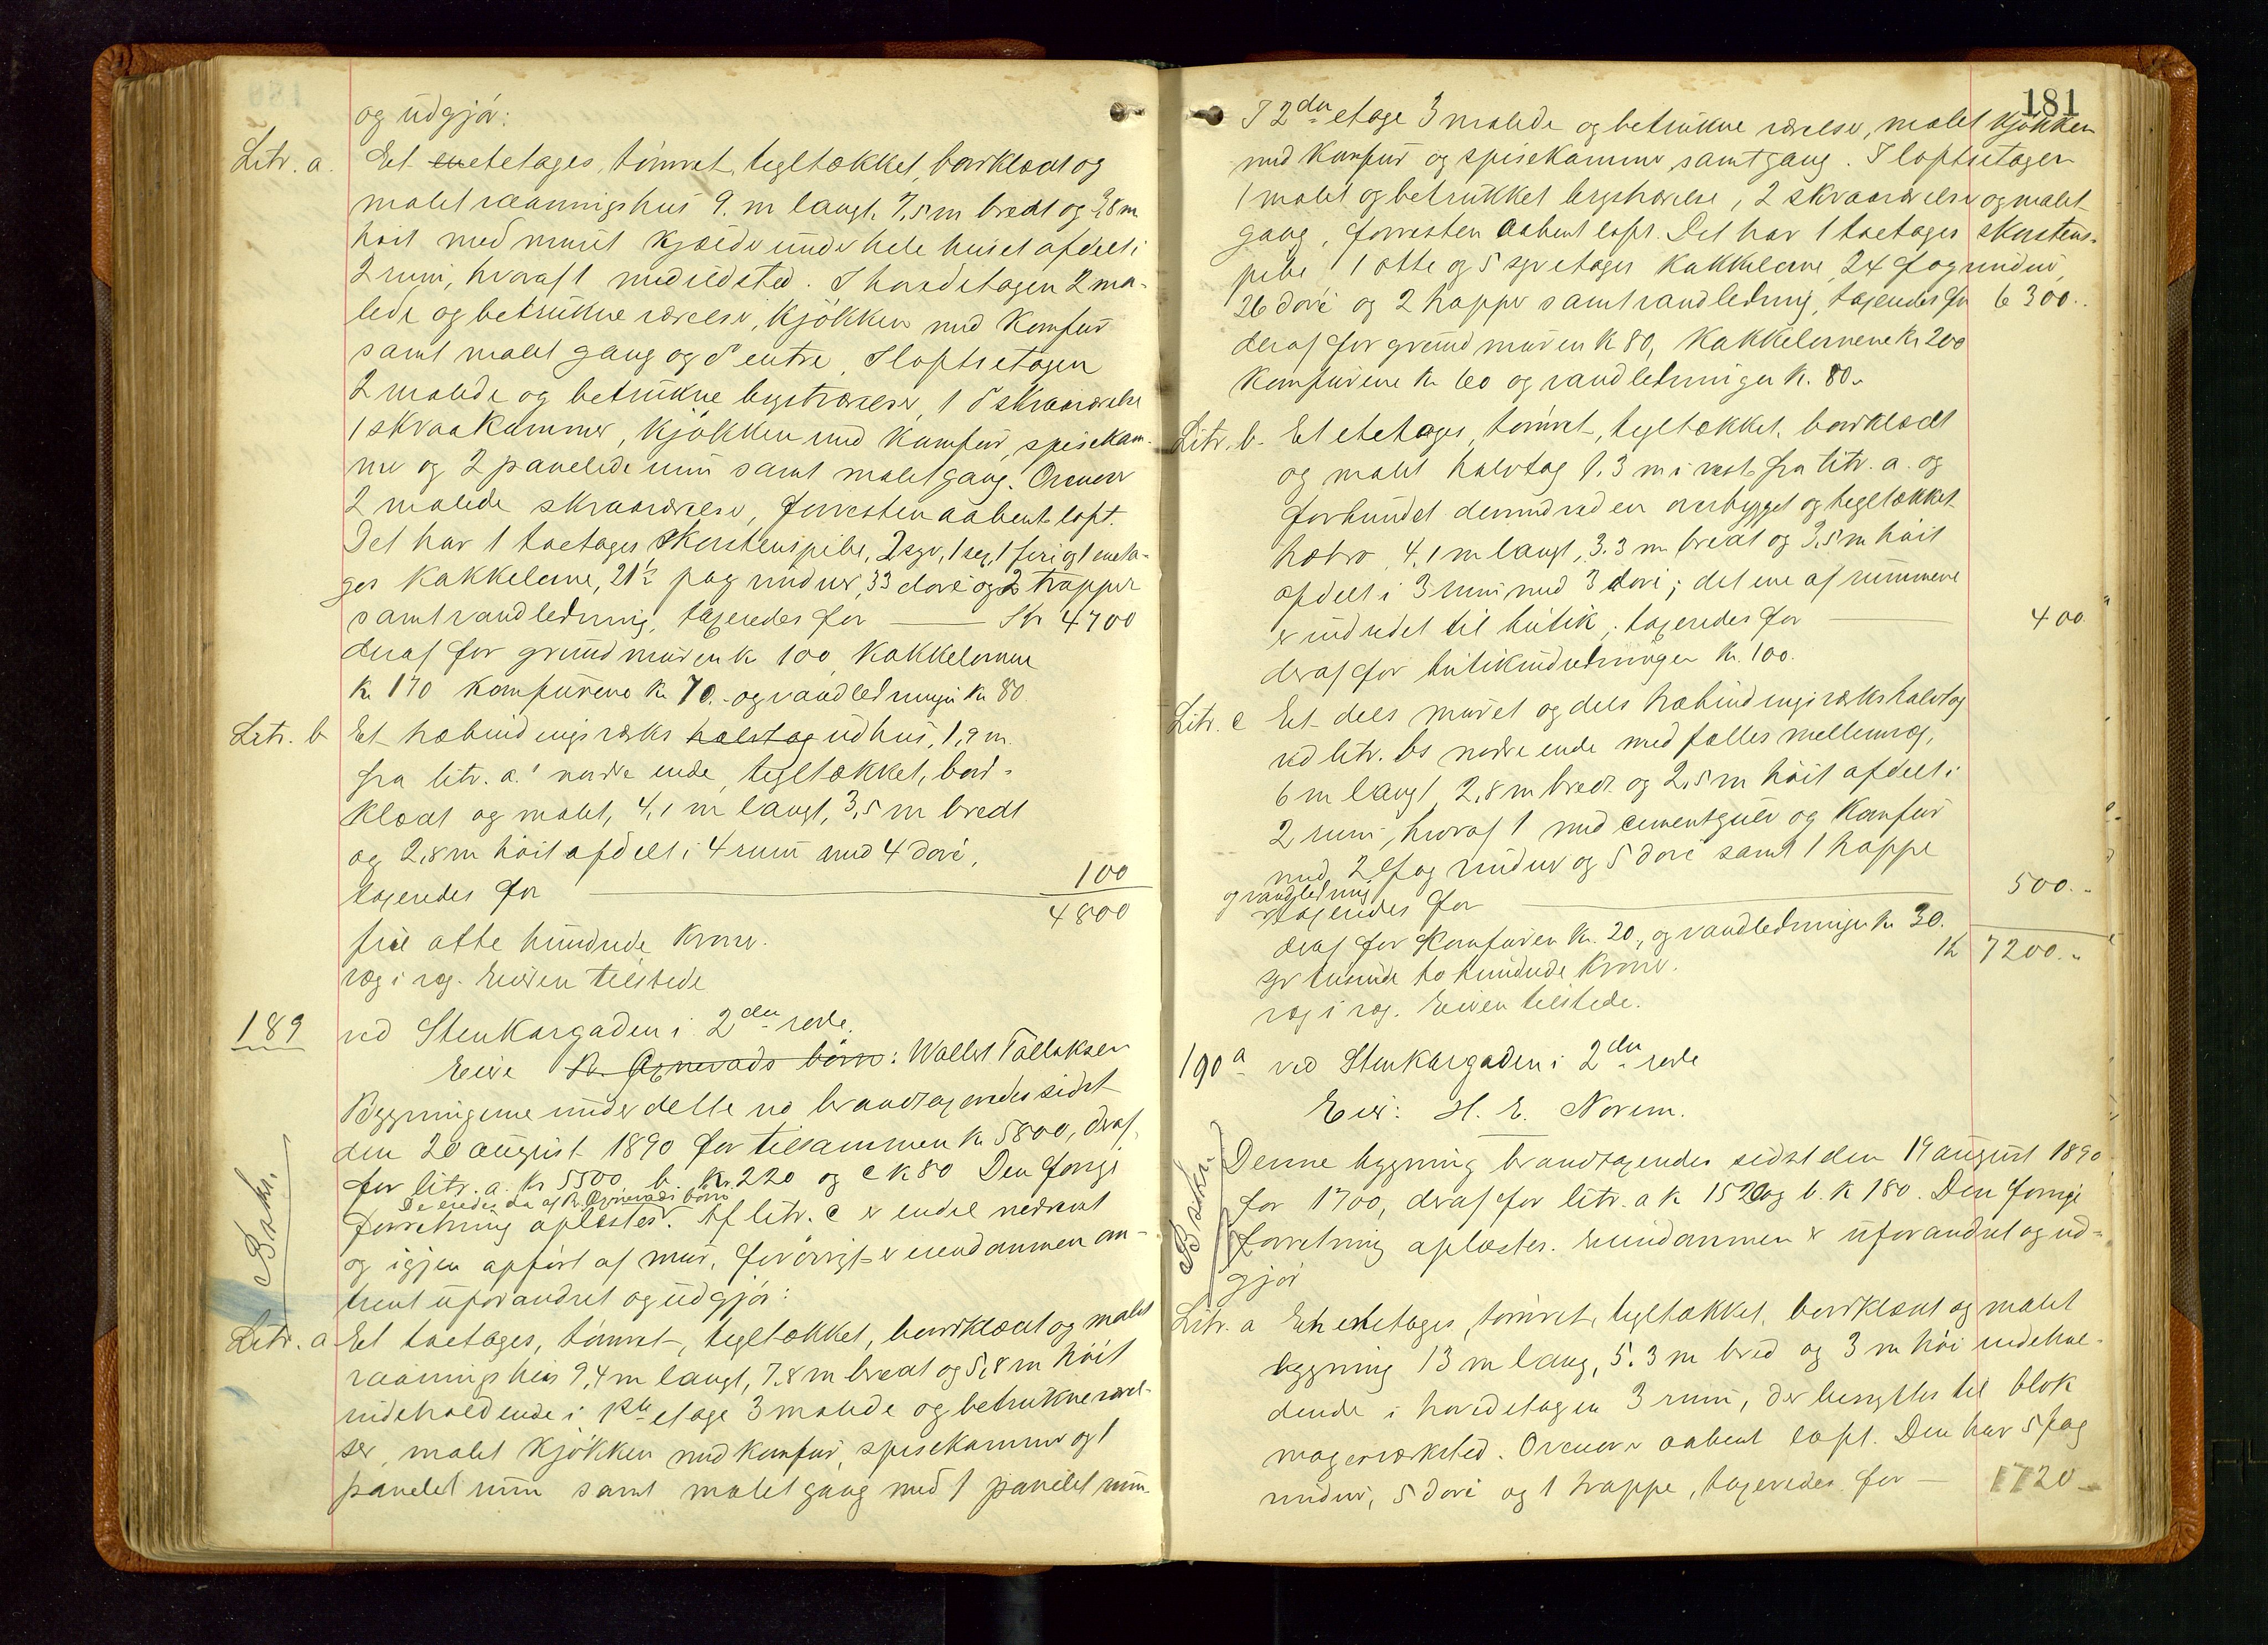 og udgjør:
Litr. a. Et enetetages, tømret, tegltækket, bordklædt og
malet vaaningshus 9. m langt, 7,5 m bredt og 3,8 m
høit med muret kjælder under hele huset afdelt i
2 rum, hvoraf 1 med ildsted. I hovedetagen 2 ma-
lede og betrukne værelser, kjøkken med komfur
samt malet gang og do entre. I loftsetagen
2 malede og betrukne kvistværelser, 1 do skraaværelse
1 skraakammer, kjøkken med komfur, spisekam-
mer og 2 panelede rum samt malet gang. Ovenover
2 malede skraaværelser, forresten aabent loft.
Det har 1 toetages skorstenspibe, 2 syv, 1 sex, 1 fire og 1 eneta-
ges kakkelovne, 21½ fag vinduer, 33 døre og 2 trapper
samt vandledning, taxeredes for — Kr 4700
deraf for grundmuren k 100, kakkelovnene
Kr 170 komfurene Kr 70.- og vandledningen Kr 80
Litr. b Et halvbindingsværks halvtag udhus, 1,9 m.
fra litr. a.' nordre ende, tegltækket, bord-
klædt og malet, 4,1 m langt, 3,5 m bredt
og 2,8 m høit afdelt i 4 rum med 4 døre,
taxeredes for — 100
4800
fire otte hundrede kroner.
væg i væg. Eieren tilstede
189 ved Stenkargaden i 2den rode.
Eiere R. Øgnevads børn: Wallert Tallaksen
Bygningerne under dette no brandtaxeredes sidst
den 20 august 1890 for tilsammen kr 5800, deraf
for litr. a. Kr 5500, b. Kr. 220 og c k 80 Den forrige
De eiedes da af R. Øgnevads børn
forretning oplæstes. Af litr. c er endel nedrevet
og igjen opført af mur, forøvrigt er eiendommen om-
trent uforandret og udgjør:
Bskr.
Litr. a Et toetages, tømret, tegltækket, bordklædt og malet
vaaningshus 9,4 m langt, 7,8 m bredt og 5,8 m høit
indeholdende i 1ste etage 3 malede og betrukne værel-
ser, malet kjøkken med komfur, spisekammer og 1
panelet rum samt malet gang med 1 panelet rum.
181
I 2den etage 3 malede og betrukne værelser, malet kjøkken
med komfur og spisekammer, samt gang. I loftsetagen
1 malet og betrukket kvistværelse, 2 skraaværelser og malet
gang, forresten aabent loft. Det har 1 toetages skorstens-
pibe 1 otte og 5 syvetages kakkelovne, 24 fag vinduer,
26 døre og 2 trapper samt vandledning, taxeredes for 6300..
deraf for grundmuren K 80, kakkelovnene Kr 200
komfurene kr 60 og vandledningen K. 80.-
Litr. b. Et etetages, tømret, tegltækket, bordklædt
og malet halvtag 1.3 m i vest fra litr. a. og
forbundet dermed ved en overbygget og tegltækket
4,1 m langt, 3.3 m bredt og 3,5 m høit
afdelt i 3 rum med 3 døre; det ene af rummene
er indredet til butik; taxeredes for — 400
deraf for butikindredningen Kr. 100.
Litr. c Et dels muret og dels halvbindingsværks halvtag
ved litr. bs nordre ende med fælles mellemvæg,
6 m langt, 2,8 m bredt og 2,5 m høit afdelt i
2 rum, hvoraf 1 med cementgulv og komfur
med 2 fag vinduer og 5 døre samt 1 trappe
og vandledning
taxeredes for — 500..
deraf for komfuren Kr. 20., og vandledningen kr 30.
Kr 7200..
syv tusinde to hundrede kroner.
væg i væg. Eieren tilstede.
190a ved Stenkargaden i 2den rode
Eier: H. E. Norem.
Bskr.
Denne bygning brandtaxeredes sidst den 19 august 1890
for 1700, deraf for litr. a k 1520 og b. k 180. Den forrige
forretning oplæstes. Eiendommen er uforandret og ud-
gjør
Litr. a En enetages, tømret, tegltækket, bordklædt og malet
bygning 13 m lang, 5.3 m bred og 3 m høi indehol-
dende i hovedetagen 3 rum, der benyttes til blok
magerværksted. Ovenover aabent loft. Den har 5 fag
vinduer, 5 døre og 1 trappe, taxeredes for — 1720 —